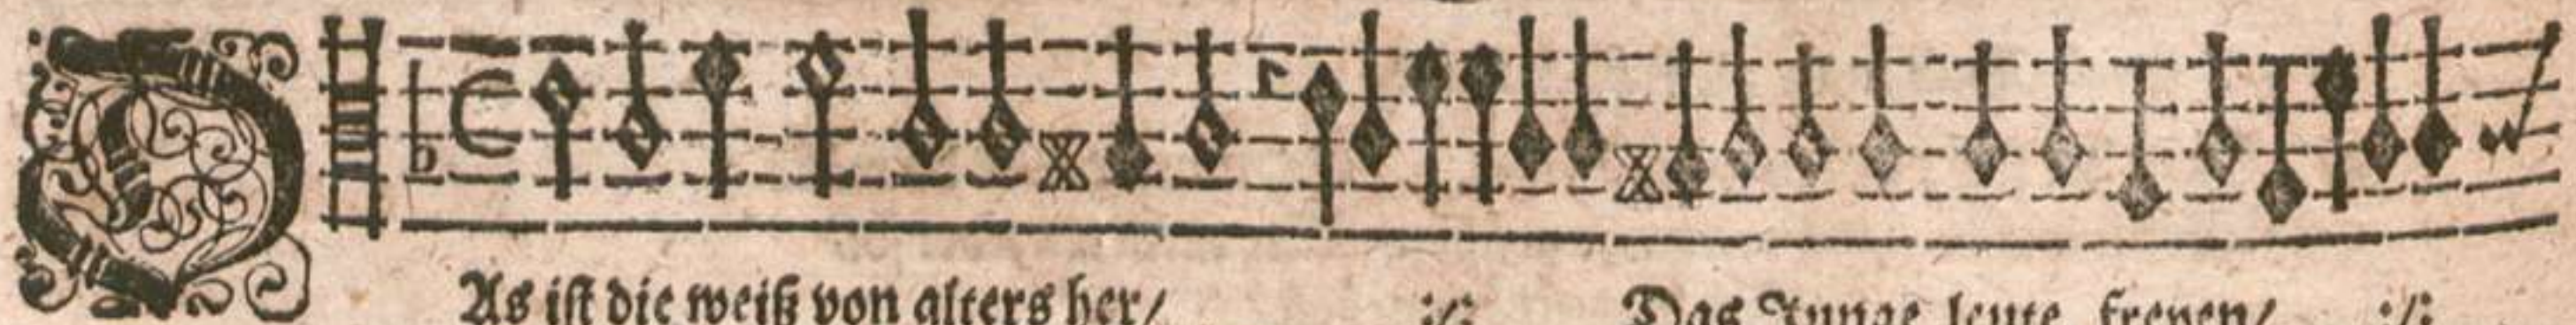 DAs ist die weiß von alters her/ :/: Das Junge leute freyen/ :/: